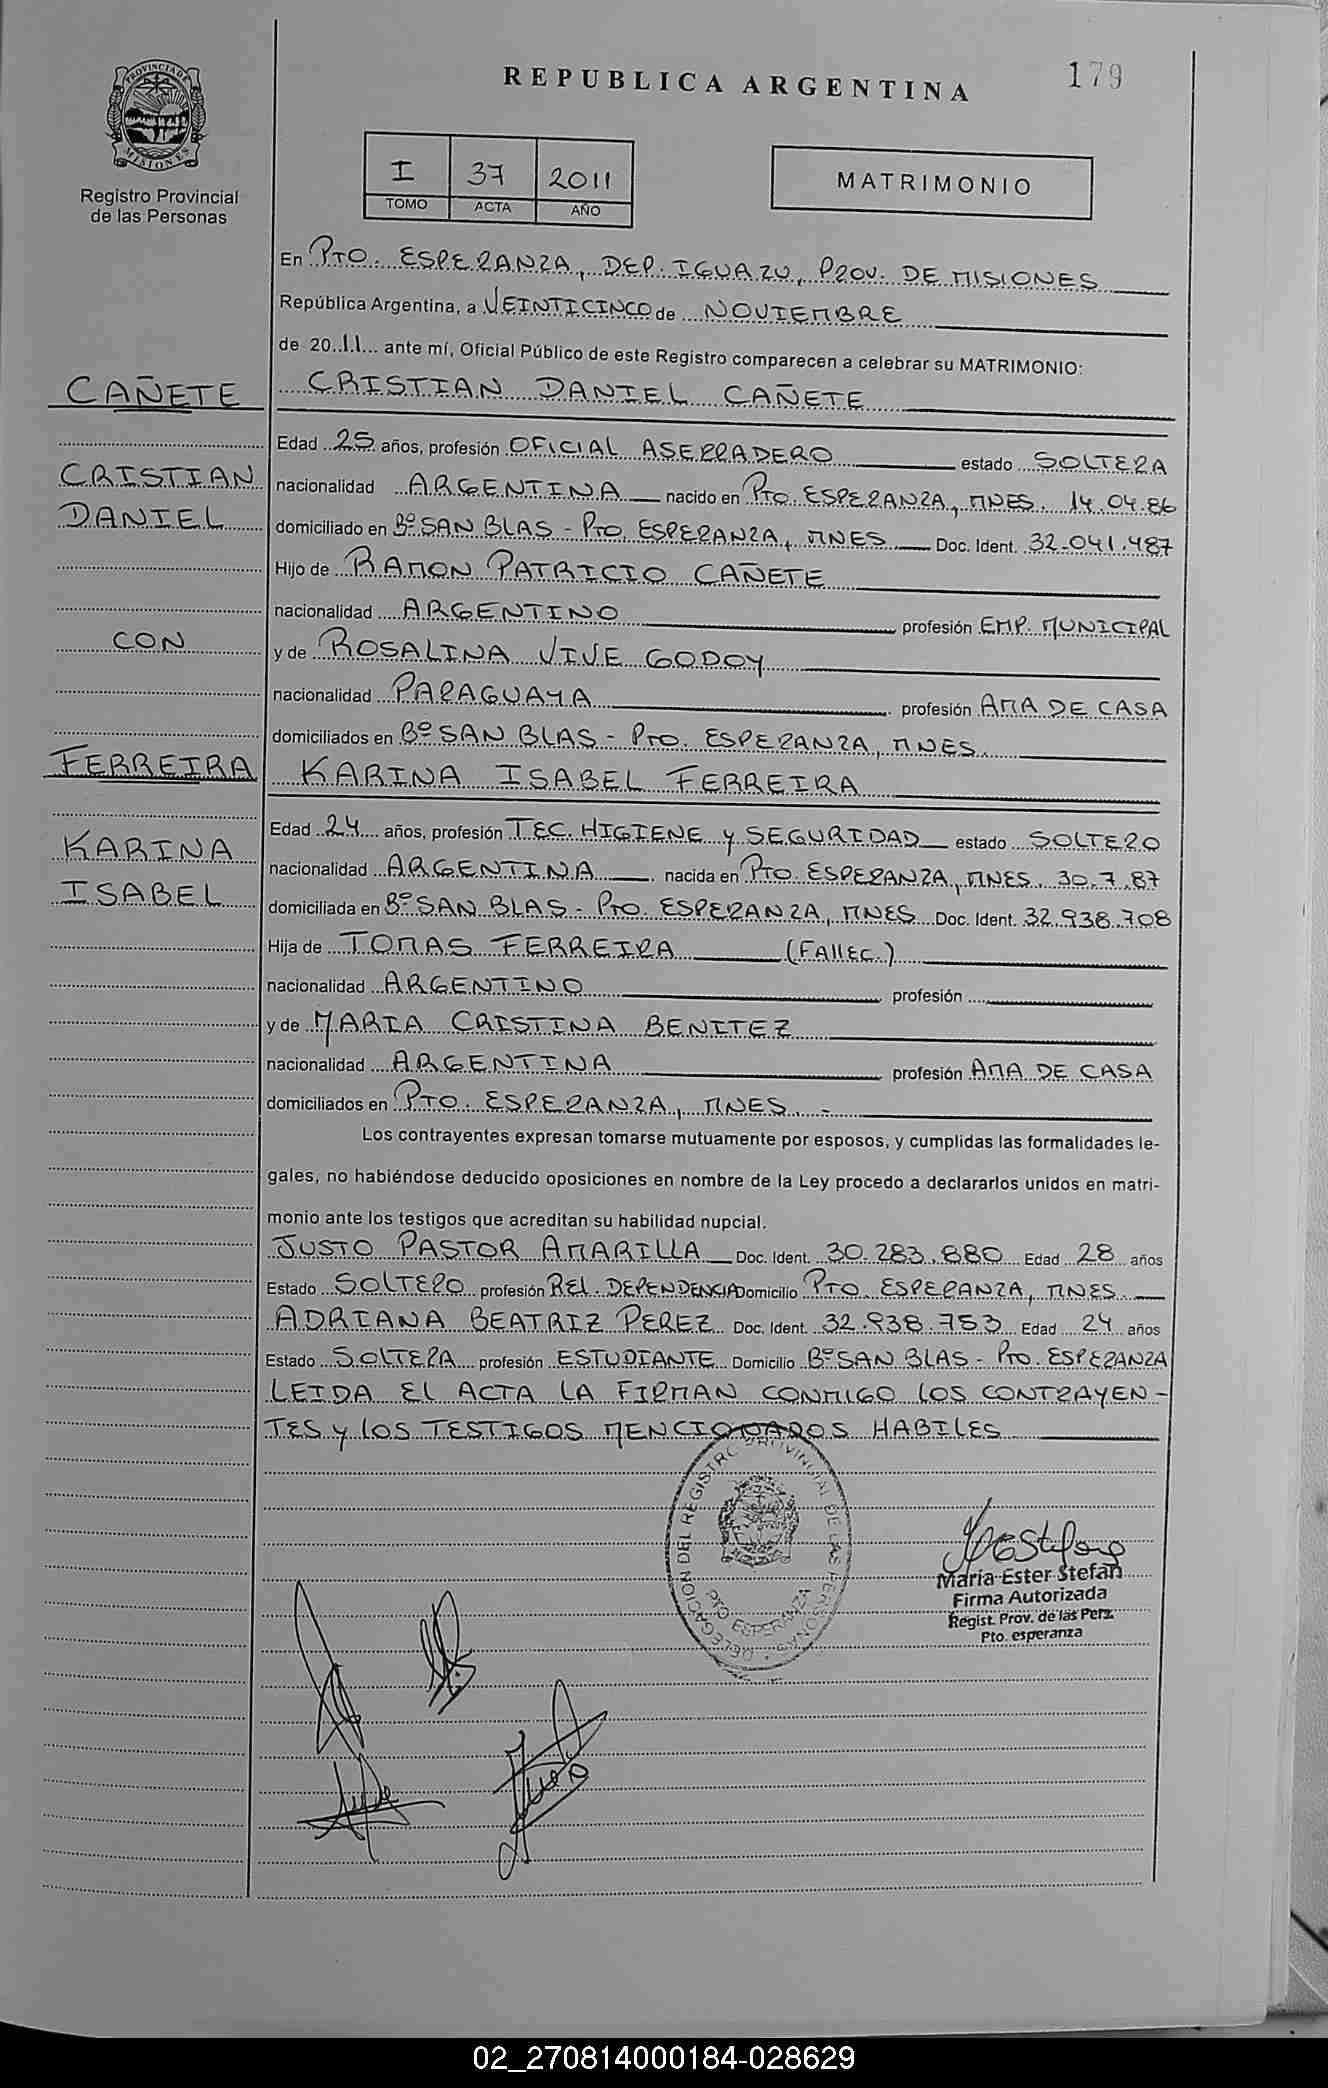 PROVINCIA DE
MISIONES
Registro Provincial
de las Personas
REPUBLICA ARGENTINA
179
I 37 2011
TOMO ACTA AÑO
MATRIMONIO
En PTO. ESPERANZA, DEP. IGUAZU, PROV. DE MISIONES
República Argentina, a VEINTICINCO de NOVIEMBRE
de 2011 ante mí, Oficial Público de este Registro comparecen a celebrar su MATRIMONIO:
CAÑETE
CRISTIAN DANIEL CAÑETE
Edad 25 años, profesión OFICIAL ASERRADERO estado SOLTERA
CRISTIAN
nacionalidad ARGENTINA nacido en PTO. ESPERANZA, MNES. 14.04.86
DANIEL
domiciliado en Bº SAN BLAS - PTO. ESPERANZA, MNES Doc. Ident. 32.041.487
Hijo de RAMON PATRICIO CAÑETE
nacionalidad ARGENTINO profesión EMP. MUNICIPAL
CON
y de ROSALINA VIVE GODOY
nacionalidad PARAGUAYA profesión AMA DE CASA
domiciliados en Bº SAN BLAS - PTO. ESPERANZA, MNES.
FERREIRA
KARINA ISABEL FERREIRA
Edad 24 años, profesión TEC. HIGIENE y SEGURIDAD estado SOLTERO
KARINA
nacionalidad ARGENTINA nacida en PTO. ESPERANZA, MNES. 30.7.87
ISABEL
domiciliada en Bº SAN BLAS - PTO. ESPERANZA, MNES Doc. Ident. 32.938.708
Hija de TOMAS FERREIRA (FALLEC.)
nacionalidad ARGENTINO profesión
y de MARIA CRISTINA BENITEZ
nacionalidad ARGENTINA profesión AMA DE CASA
domiciliados en PTO. ESPERANZA, MNES -
Los contrayentes expresan tomarse mutuamente por esposos, y cumplidas las formalidades le-
gales, no habiéndose deducido oposiciones en nombre de la Ley procedo a declararlos unidos en matri-
monio ante los testigos que acreditan su habilidad nupcial.
JUSTO PASTOR AMARILLA Doc. Ident. 30.283.880 Edad 28 años
Estado SOLTERO profesión REL. DEPENDENCIA Domicilio PTO. ESPERANZA, MNES.
ADRIANA BEATRIZ PEREZ Doc. Ident. 32.938.753 Edad 24 años
Estado SOLTERA profesión ESTUDIANTE Domicilio Bº SAN BLAS - PTO. ESPERANZA
LEIDA EL ACTA LA FIRMAN CONMIGO LOS CONTRAYEN-
TES y LOS TESTIGOS MENCIONADOS HABILES
DELEGACION DEL REGISTRO PROVINCIAL DE LAS PERSONAS
PTO ESPERANZA
María Ester Stefan
Firma Autorizada
Regist. Prov. de las Perz.
Pto. esperanza
02_270814000184-028629